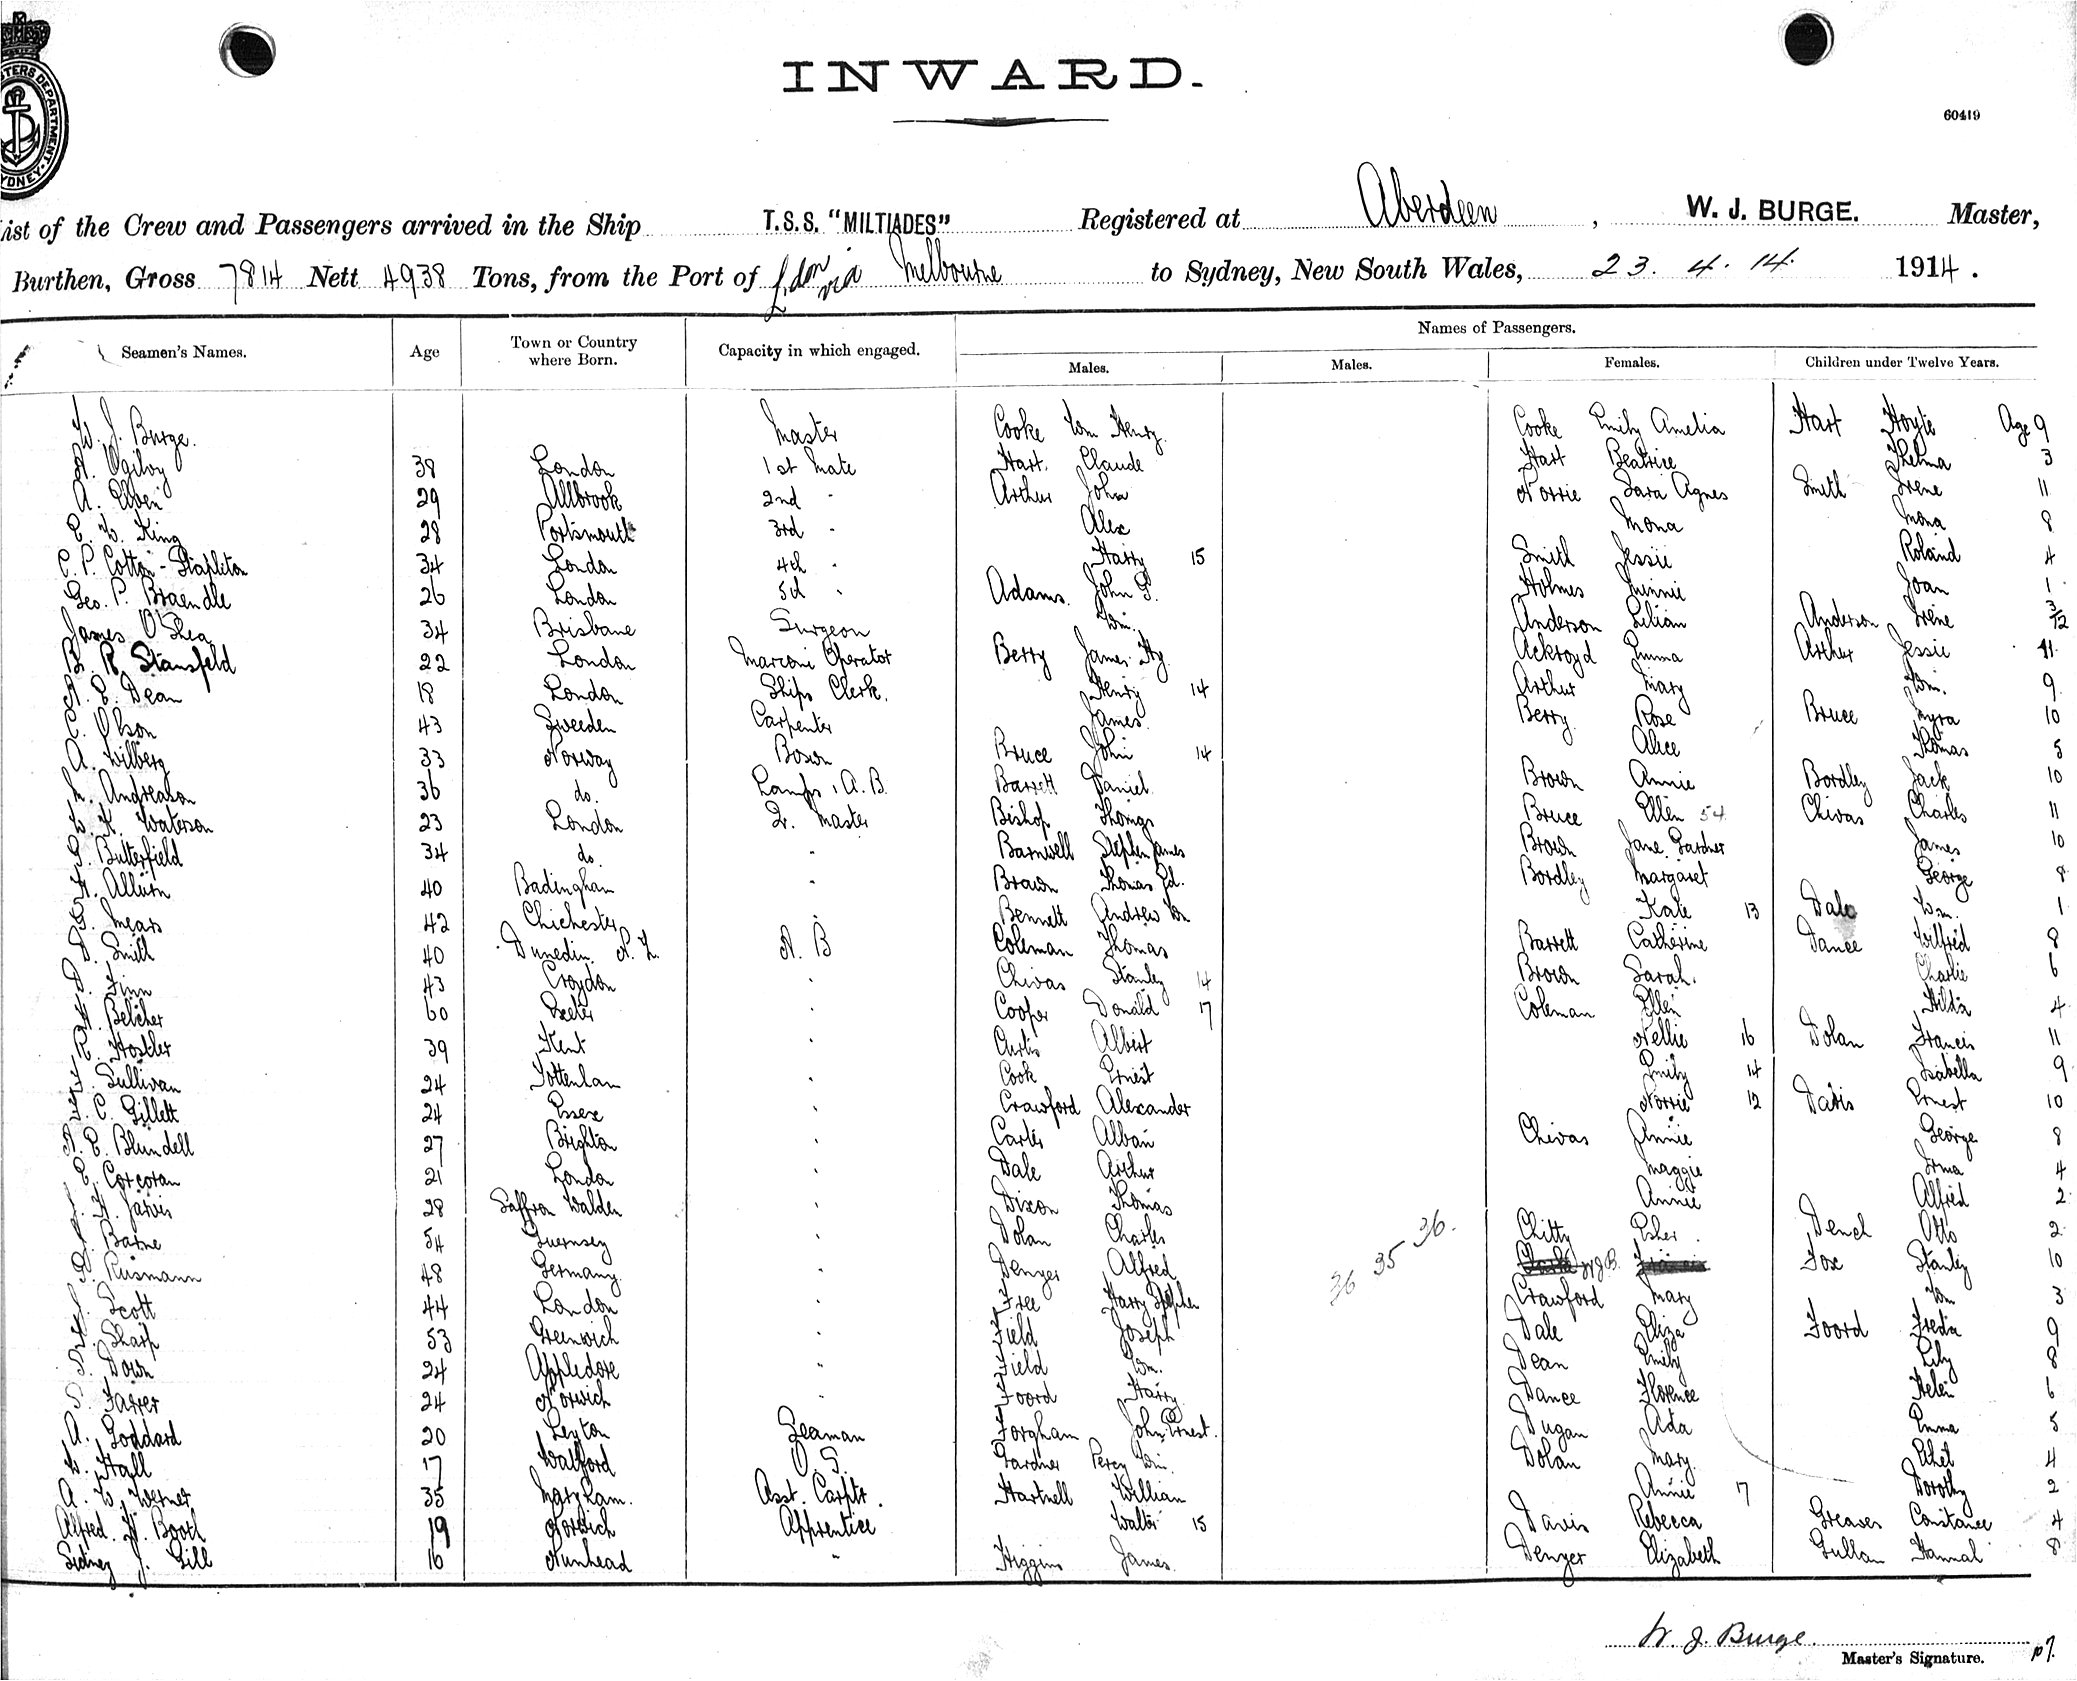 INWARD.
60419
STERS DEPARTMENT. SYDNEY.
List of the Crew and Passengers arrived in the Ship T.S.S. "MILTIADES" Registered at Aberdeen, W. J. BURGE. Master,
Burthen, Gross 7814 Nett 4938 Tons, from the Port of Ldon via Melbourne to Sydney, New South Wales, 23. 4. 14. 1914.
Names of Passengers.
Seamen's Names. Age Town or Country where Born. Capacity in which engaged. Males. Males. Females. Children under Twelve Years.
W. J. Burge. Master Cooke Wm Henry. Cooke Emily Amelia Hart Hoyle Age 9
Ogilvy 38 London 1st Mate Hart. Claude Hart Beatrice Thelma 3
A. Elven 29 Allbrook 2nd " Arthur John Norrie Sara Agnes Smith Irene 11
E. W. King 28 Portsmouth 3rd " Alex Mona Mona 8
C. P. Cotton-Stapleton 34 London 4th " Harry 15 Smith Jessie Roland 4
Geo. P. Braendle 26 London 5th " Adams. John G. Holmes Minnie Joan 1
James O'Shea 34 Brisbane Surgeon Wm. Anderson Lilian Anderson Irene 3/12
B. R. Stansfeld 22 London Marconi Operator Berry James Hy. Ackroyd Emma Arthur Jessie 11
E. Dean 18 London Ships Clerk. Henry 14 Arthur Mary Wm. 9
Olson 43 Sweden Carpenter James. Berry Rose Bruce Myra 10
A. Wilberg 33 Norway Bosun Bruce John 14 Alice Thomas 5
Andreason 36 do. Lamps, A.B. Barrett Daniel Brown Annie Bordley Jack 10
Waterson 23 London Qr. Master Bishop Thomas Bruce Ellen 54 Chivas Charles 11
Butterfield 34 do. " Barnwell Stephen James Brown Jane Gardner James 10
Allurn 40 Badingham " Brown Thomas Ed. Bordley Margaret George 8
Mears 42 Chichester " Bennett Andrew Wm Kate 13 Dale Wm. 1
Smith 40 Dunedin. N. Z. A. B Coleman Thomas Barrett Catherine Dance Wilfred 8
Finn 43 Croydon " Chivas Stanley 14 Brown Sarah. Charlie 6
Belcher 60 Exeter " Cooper Donald 17 Coleman Ellen Hilda 4
Hostler 39 Kent " Curtis Albert Nellie 16 Dolan Francis 11
Sullivan 24 Tottenham " Cook Ernest Emily 14 Isabella 9
C. Gillett 24 Essex " Crawford Alexander Norrie 12 Davis Ernest 10
E. Blundell 27 Brighton " Carter Alban Chivas Annie George 8
E. Corcoran 21 London " Dale Arthur Maggie Irma 4
H. Jarvis 28 Saffron Walden " Dixon Thomas Annie Alfred 2
Barne 54 Guernsey " Dolan Charles 36 35 36. Chitty Esher Dench Otto 2
Rusmann 48 Germany. " Denyer Alfred W.J.B. Fox Stanley 10
Scott 44 London " Free Harry Stephen Crawford Mary Wm 3
Sharp 53 Greenwich " Field Joseph Dale Eliza Foord Freda 9
Down 24 Appledore " Field Wm. Dean Emily Lily 8
Farrer 24 Norwich " Foord Harry Dance Florence Helen 6
A. Goddard 20 Leyton Seaman Forgham John Ernest. Dugan Ada Emma 5
W. Hall 17 Watford O.S. Gardner Percy Wm. Dolan Mary. Ethel 4
A. W. Werner 35 Maryham. Asst. Carptr. Hartnell William Annie 17 Dorothy 2
Alfred. H. Booth 19 Norwich Apprentice Walter 15 Davis Rebecca Greaves Constance 4
Sidney J. Gill 16 Nunhead " Higgins James. Denyer Elizabeth Gullan Hannah 8
W. J. Burge.
Master's Signature.
p7.